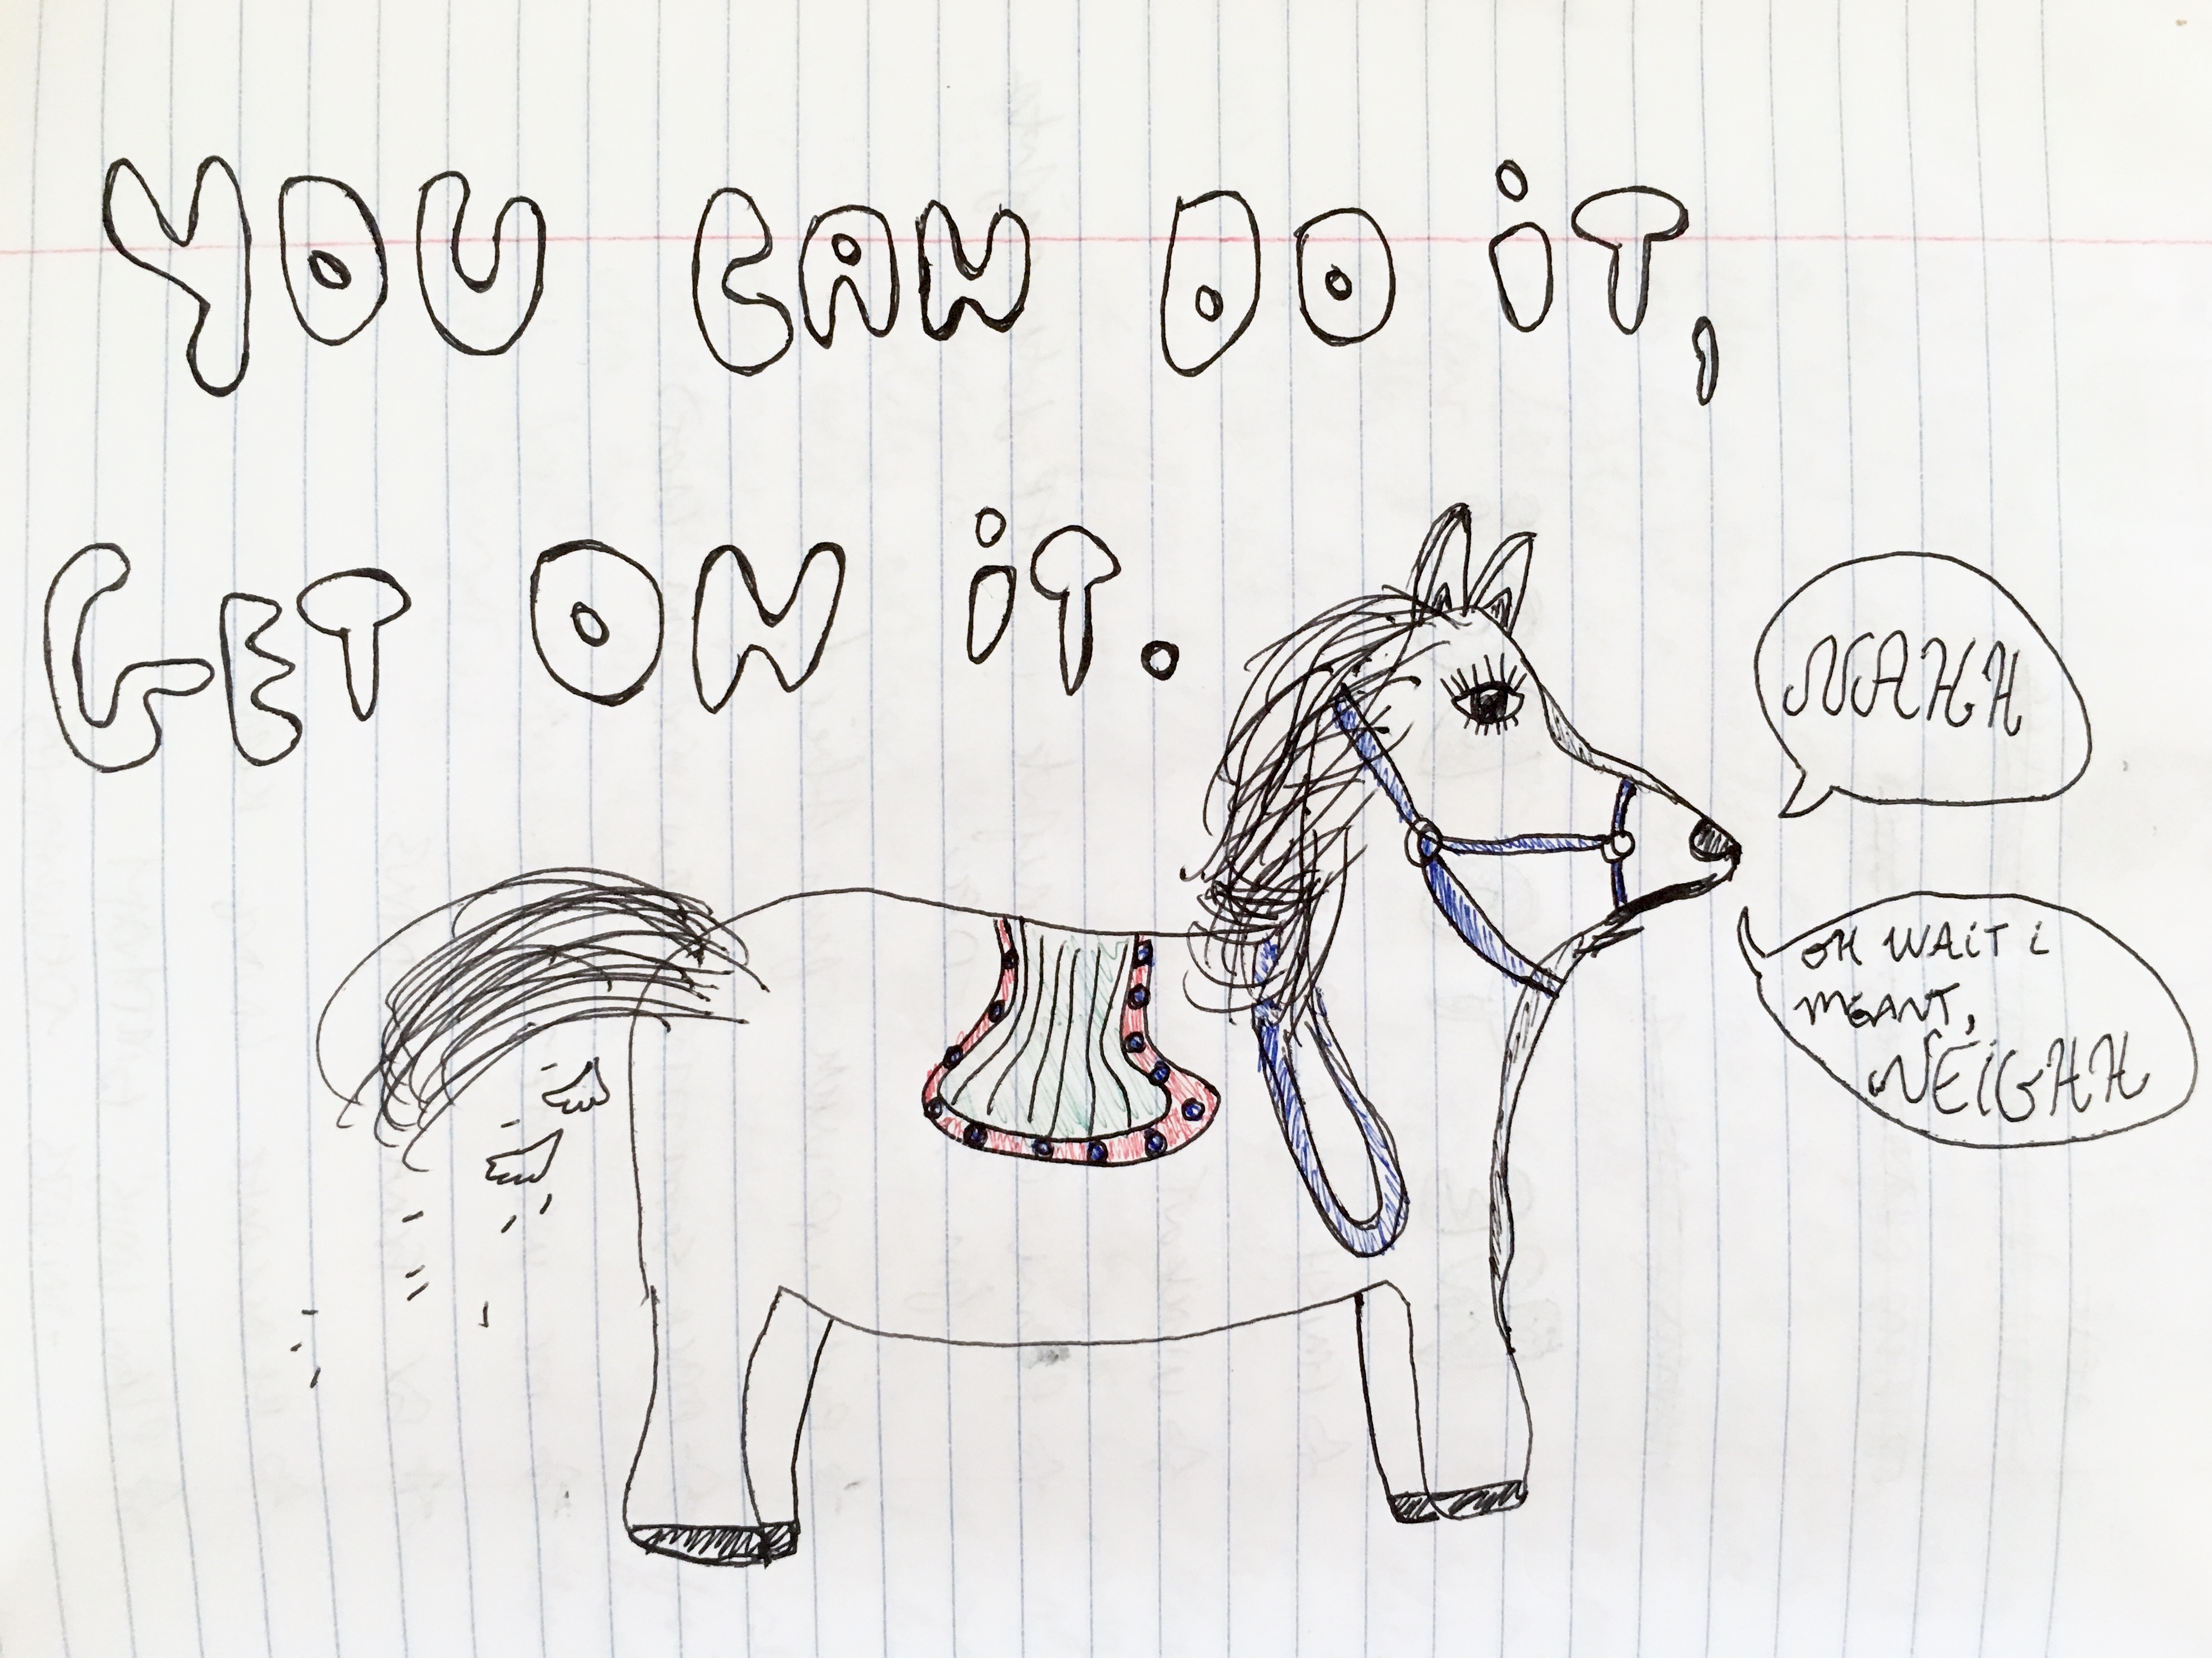 YOU CAN DO iT,
GET ON iT.
NAHH
OH WAiT i
MEANT,
NEiGHH